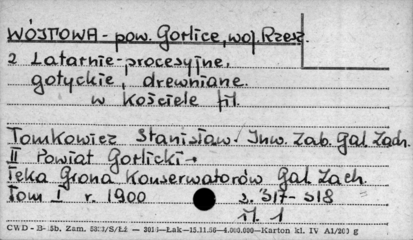 WÓJTOWA - pow. Gorlice, woj. Rzesz.
2 Latarnie procesyjne,
gotyckie, drewniane.
w kościele fil.
Tomkowicz Stanisław: Inw. Zab. Gal Zach.
II Powiat Gorlicki
Teka Grona Konserwatorów Gal Zach.
Tom I r. 1900 s. 317-318
il. 1
CWD - Zam. /S/Łź — Łak—15.11.56—4.000.000—Karton kl. IV A1/200 g